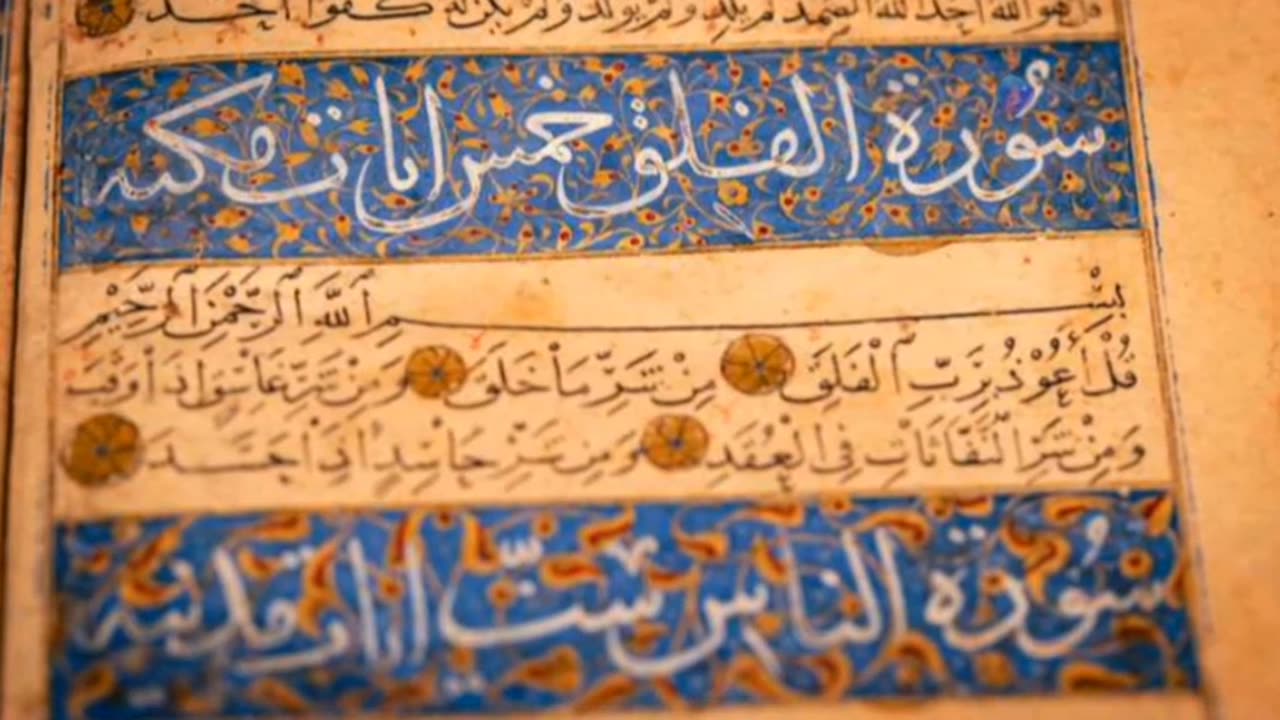 قل هو الله احد الله الصمد لم يلد ولم يولد ولم يكن له كفوا احد
سُورة الفلق خمس ايات مكيه
بِسْمِ اللَّهِ الرَّحْمٰنِ الرَّحِيْمِ
قُلْ اَعُوْذُ بِرَبِّ الْفَلَقِ مِنْ شَرِّ مَا خَلَقَ وَمِنْ شَرِّ غَاسِقٍ اِذَا وَقَبَ
وَمِنْ شَرِّ النَّفَّاثَاتِ فِى الْعُقَدِ وَمِنْ شَرِّ حَاسِدٍ اِذَا حَسَدَ
سُورة الناس ستّ ايات مدنيه